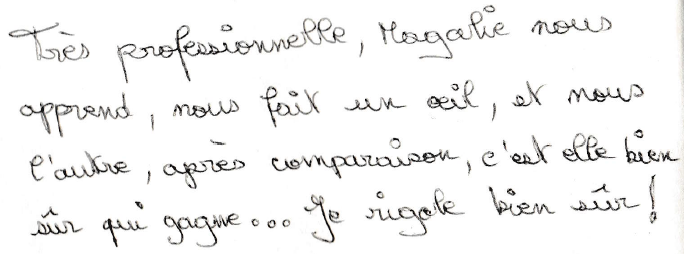 Très professionnelle, Magalie nous
apprend, nous fait un œil, et nous
l'autre, après comparaison, c'est elle bien
sûr qui gagne... Je rigole bien sûr !